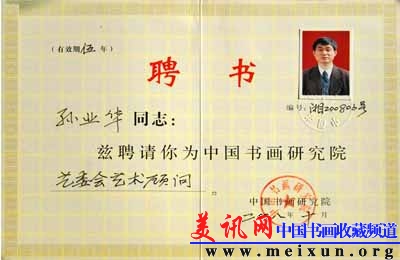 （有效期伍年）
聘书
编号：湘200806号
孙业华同志：
兹聘请你为中国书画研究院
艺委会艺术顾问。
中国书画研究院
二〇〇八年十月
美讯网 中国书画收藏频道
www.meixun.org